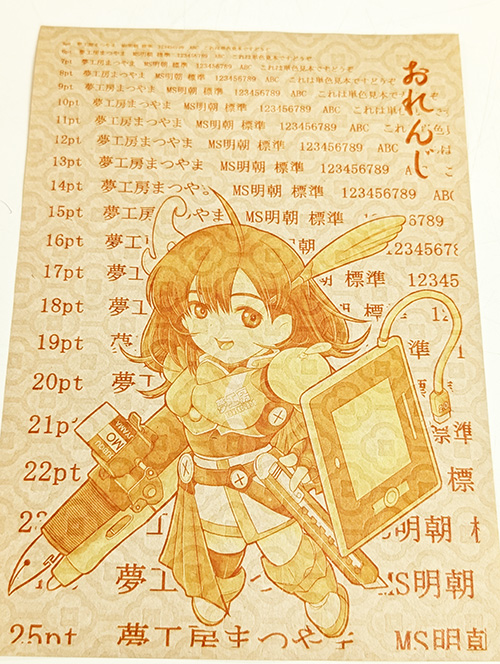 おれんじ
7pt 夢工房まつやま MS明朝 標準 123456789 ABC これは単色見本ですどうぞ
8pt 夢工房まつやま MS明朝 標準 123456789 ABC これは単色見本ですどうぞ
9pt 夢工房まつやま MS明朝 標準 123456789 ABC これは単色見本
10pt 夢工房まつやま MS明朝 標準 123456789 ABC これは単色
11pt 夢工房まつやま MS明朝 標準 123456789 ABC これは
12pt 夢工房まつやま MS明朝 標準 123456789 ABC
13pt 夢工房まつやま MS明朝 標準 123456789 A
14pt 夢工房まつや MS明朝 標準 123456789 AB
15pt 夢工房まつやま MS明朝 標準 123456789
16pt 夢工 MS明朝 23456789
17pt 夢工 標準 12345
18pt 夢工
19pt 準
20pt 夢
21pt 標準
22pt 夢 標
夢 MS明朝
夢工 MS明朝
25pt 夢工房まつやま MS明
MO